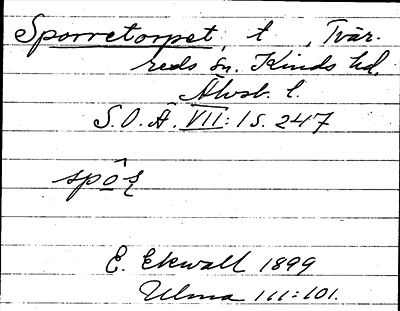 Sporretorpet, t., Tvär-
reds sn. Kinds hd.
Älvsb. l.
S.O.Ä. VII:1 s. 247
E. Ekwall 1899
Ulma 111:101.